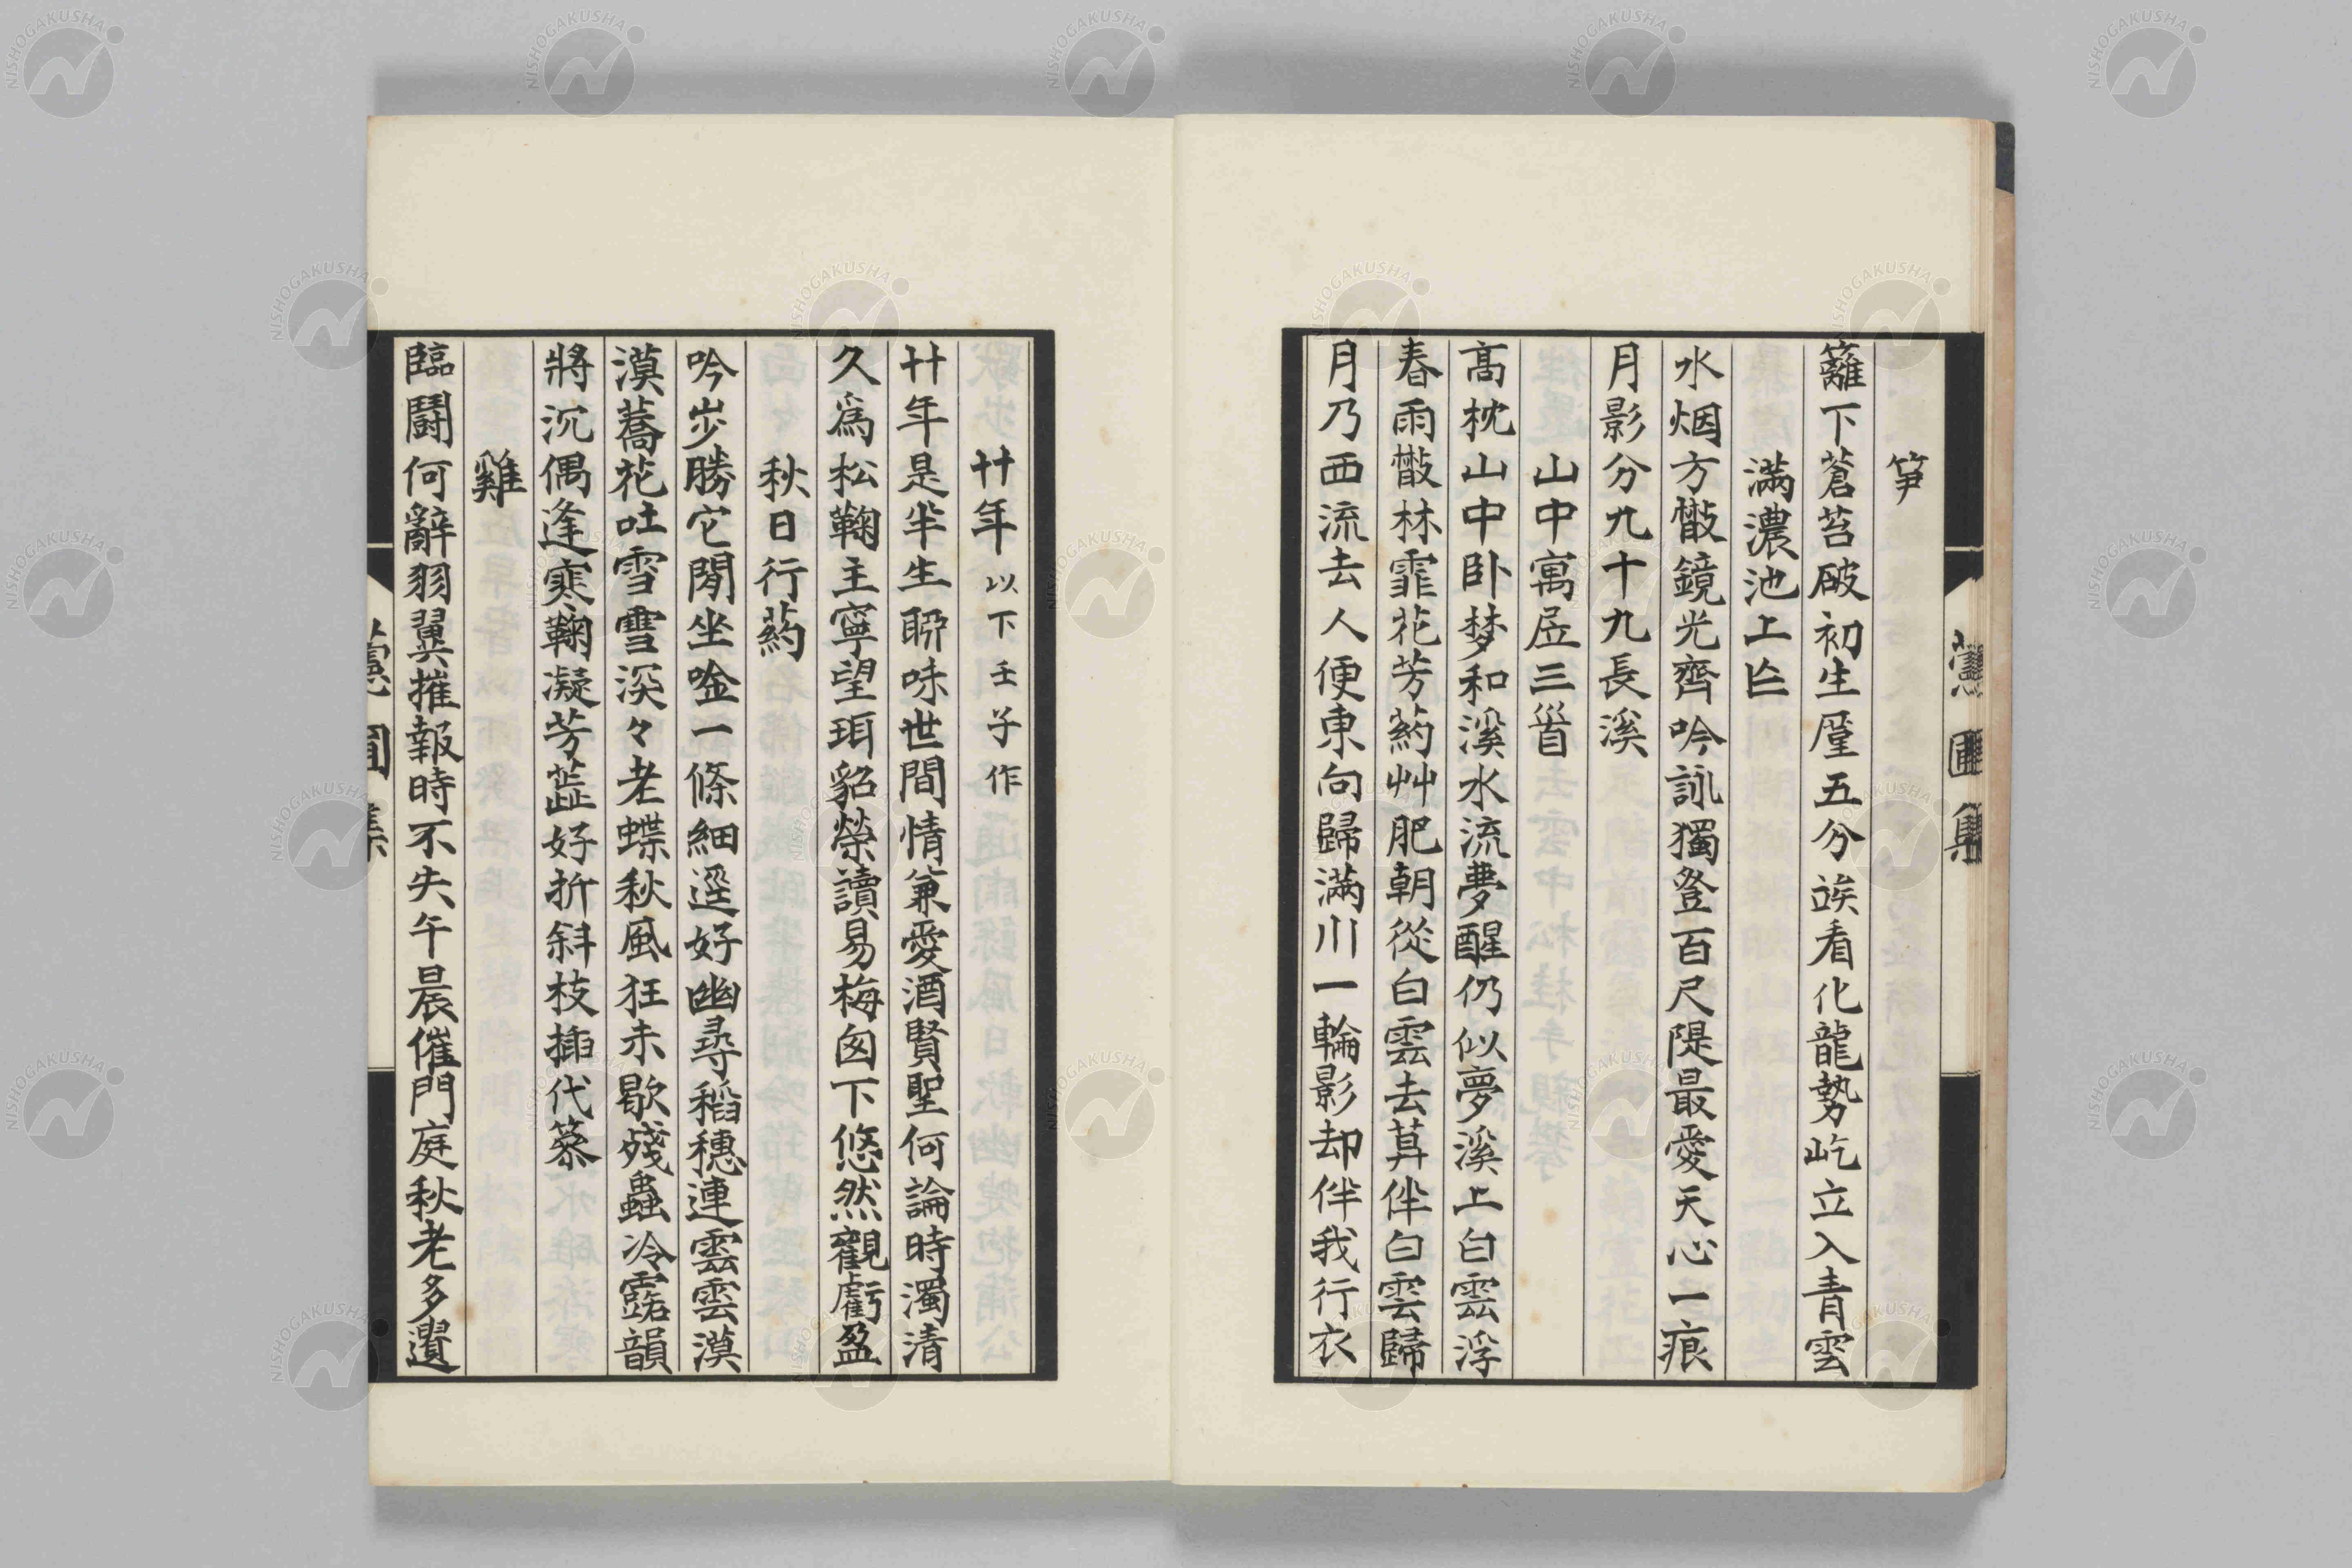 笋
籬下蒼苔破初生厪五分竢看化龍勢屹立入青雲
滿濃池上亾
水烟方㪚鏡光齊吟詠獨登百尺隄最愛天心一痕
月影分九十九長溪
山中寓凥三首
高枕山中卧梦和溪水流夢醒仍似夢溪上白雲浮
春雨㪚林霏花芳葯艸肥朝從白雲去暮伴白雲歸
月乃西流去人便東向歸滿川一輪影却伴我行衣
廿年 以下壬子作
廿年是半生聊味世間情兼愛酒賢聖何論時濁清
久爲松鞠主寧望珥貂榮讀易梅囱下悠然觀虧盈
秋日行葯
吟步勝它閒坐唫一條細逕好幽尋稻穗連雲雲漠
漠蕎花吐雪雪深々老蝶秋風狂未歇殘蟲冷露韻
將沉偶逢寒鞠凝芳蕋好折斜枝插代簪
雞
臨鬪何辭羽翼摧報時不失午晨催門庭秋老多遺